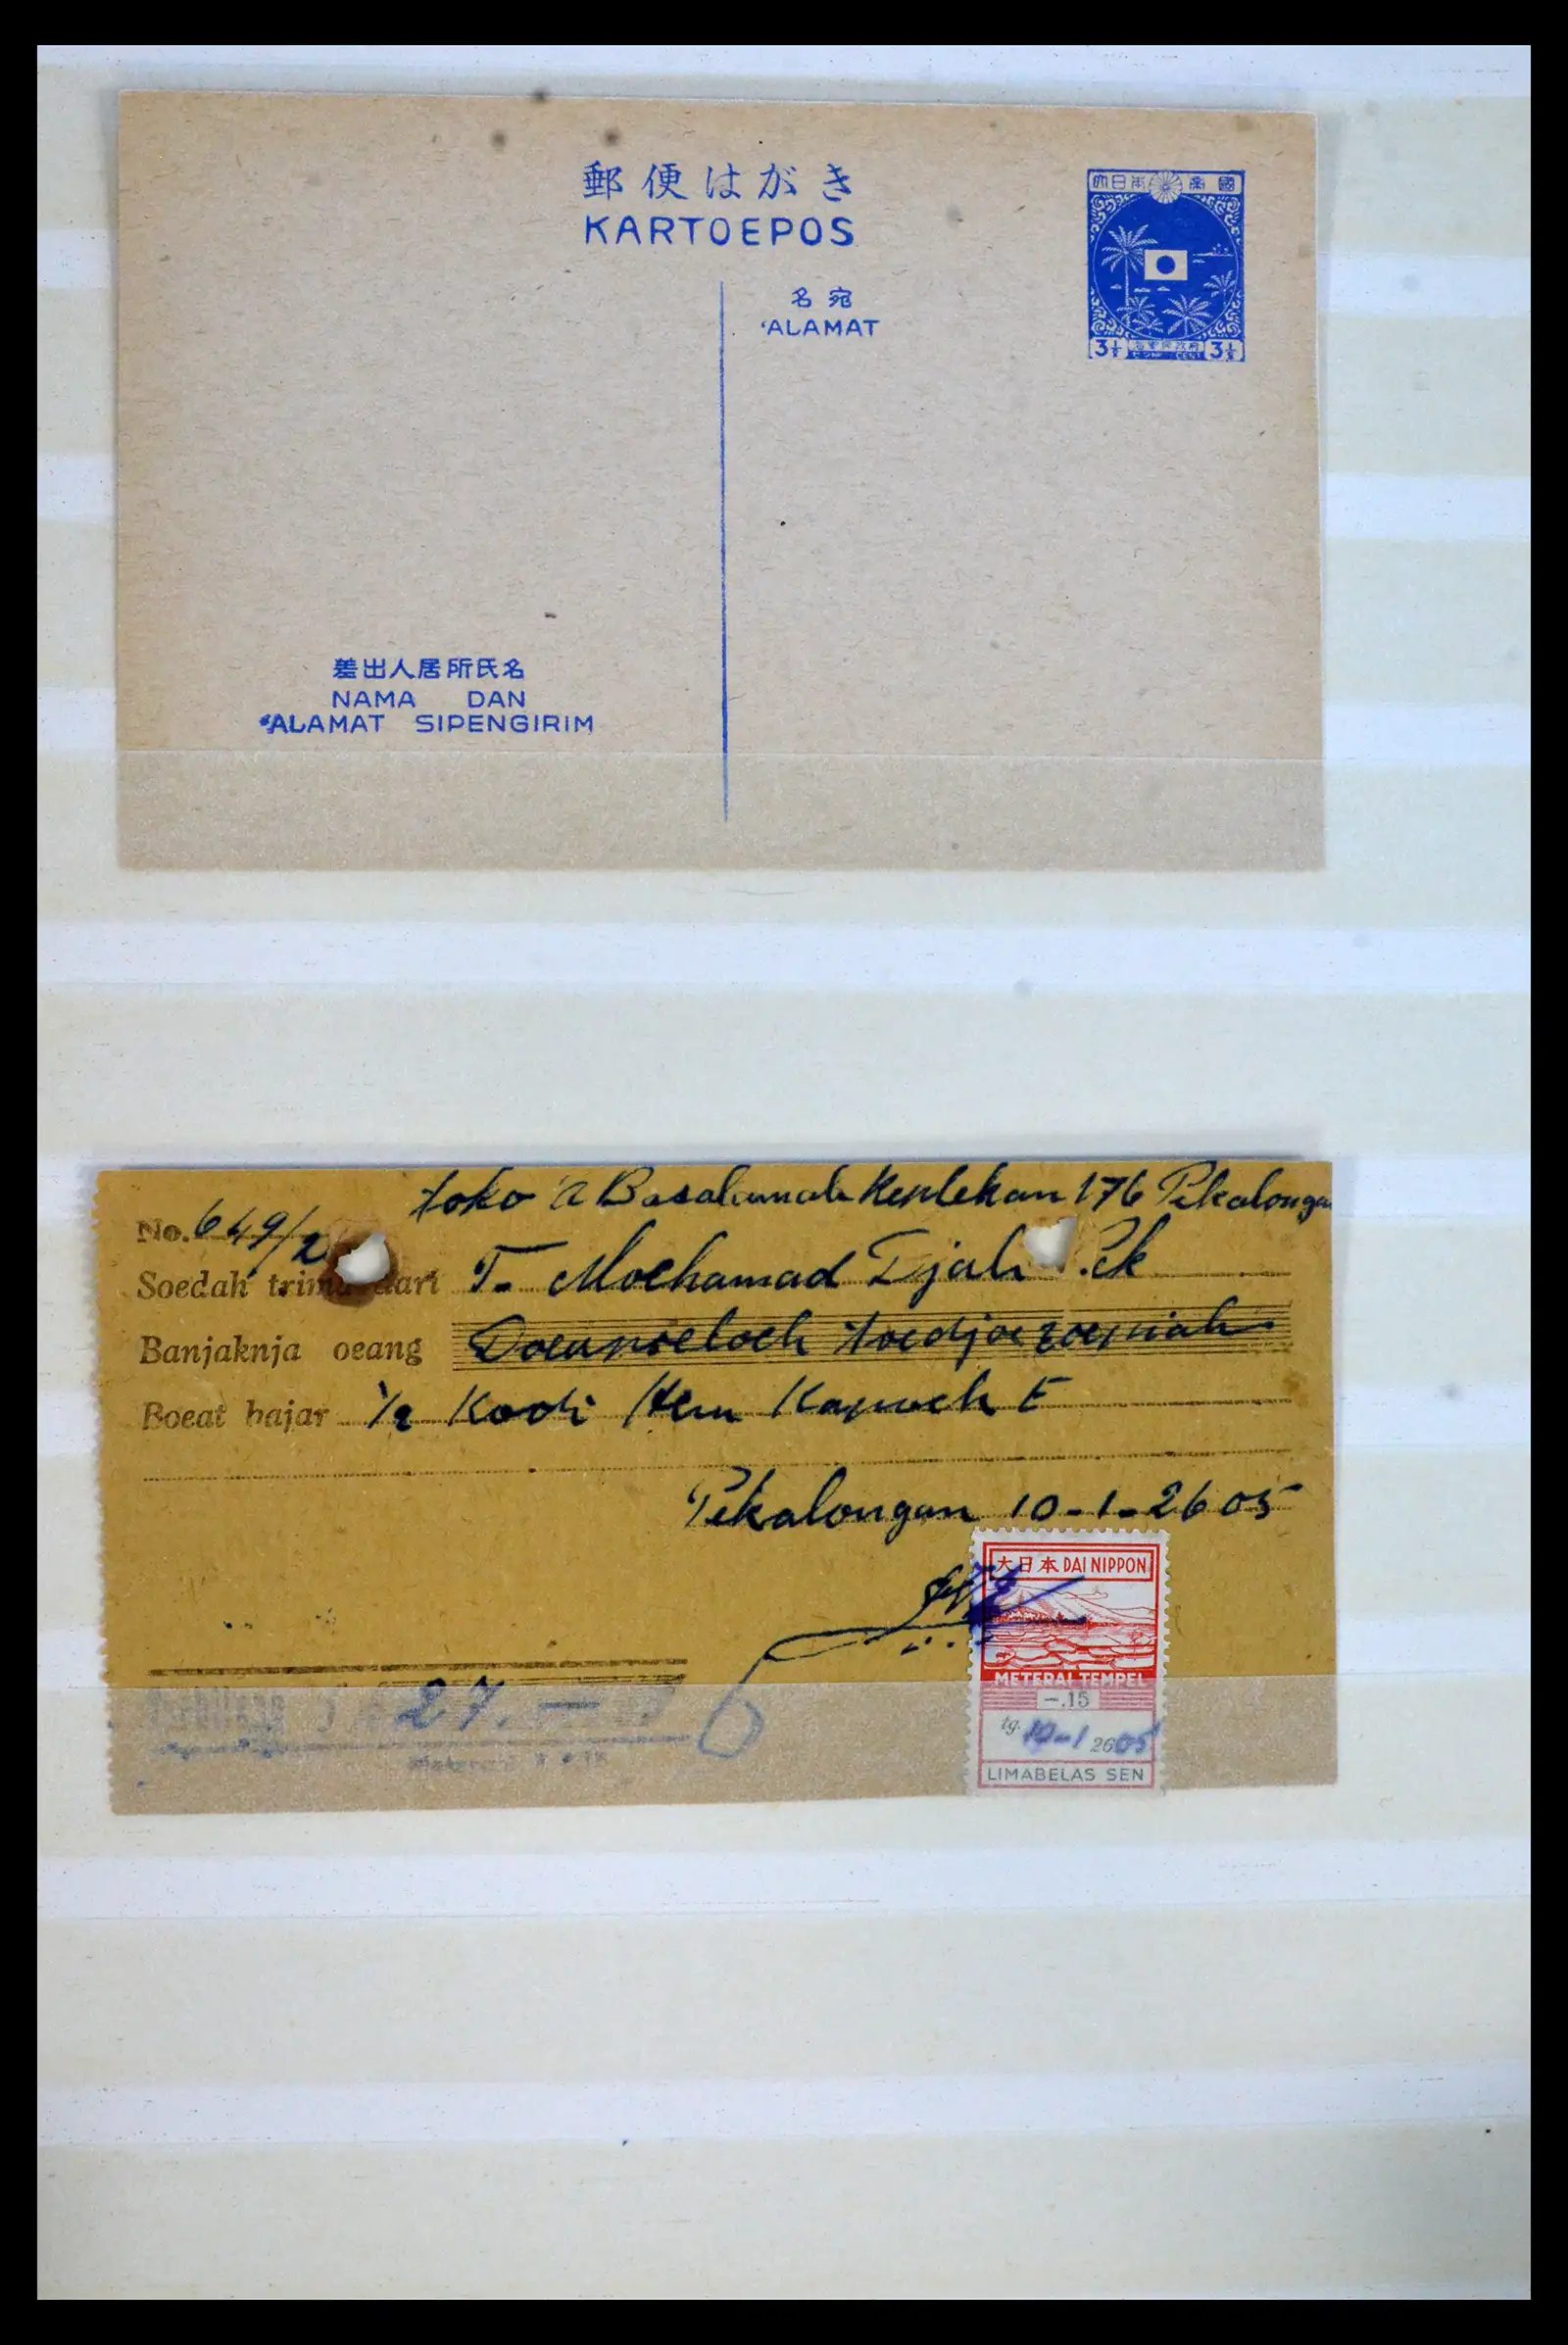 郵便はがき
KARTOEPOS
大日本帝國
名宛
'ALAMAT
3½ CENT 3½
差出人居所氏名
NAMA DAN
'ALAMAT SIPENGIRIM
toko Basalamah 176 Pekalongan
No. 649/2
Soedah trima dari T. Mochamad Djali Pek
Banjaknja oeang Doeapoeloeh toedjoe roepiah
Boeat bajar ½ Kodi Hem Kapoek E
Pekalongan 10-1-2605
大日本 DAI NIPPON
METERAI TEMPEL
-.15
27.-
tg. 10-1 2605
LIMABELAS SEN